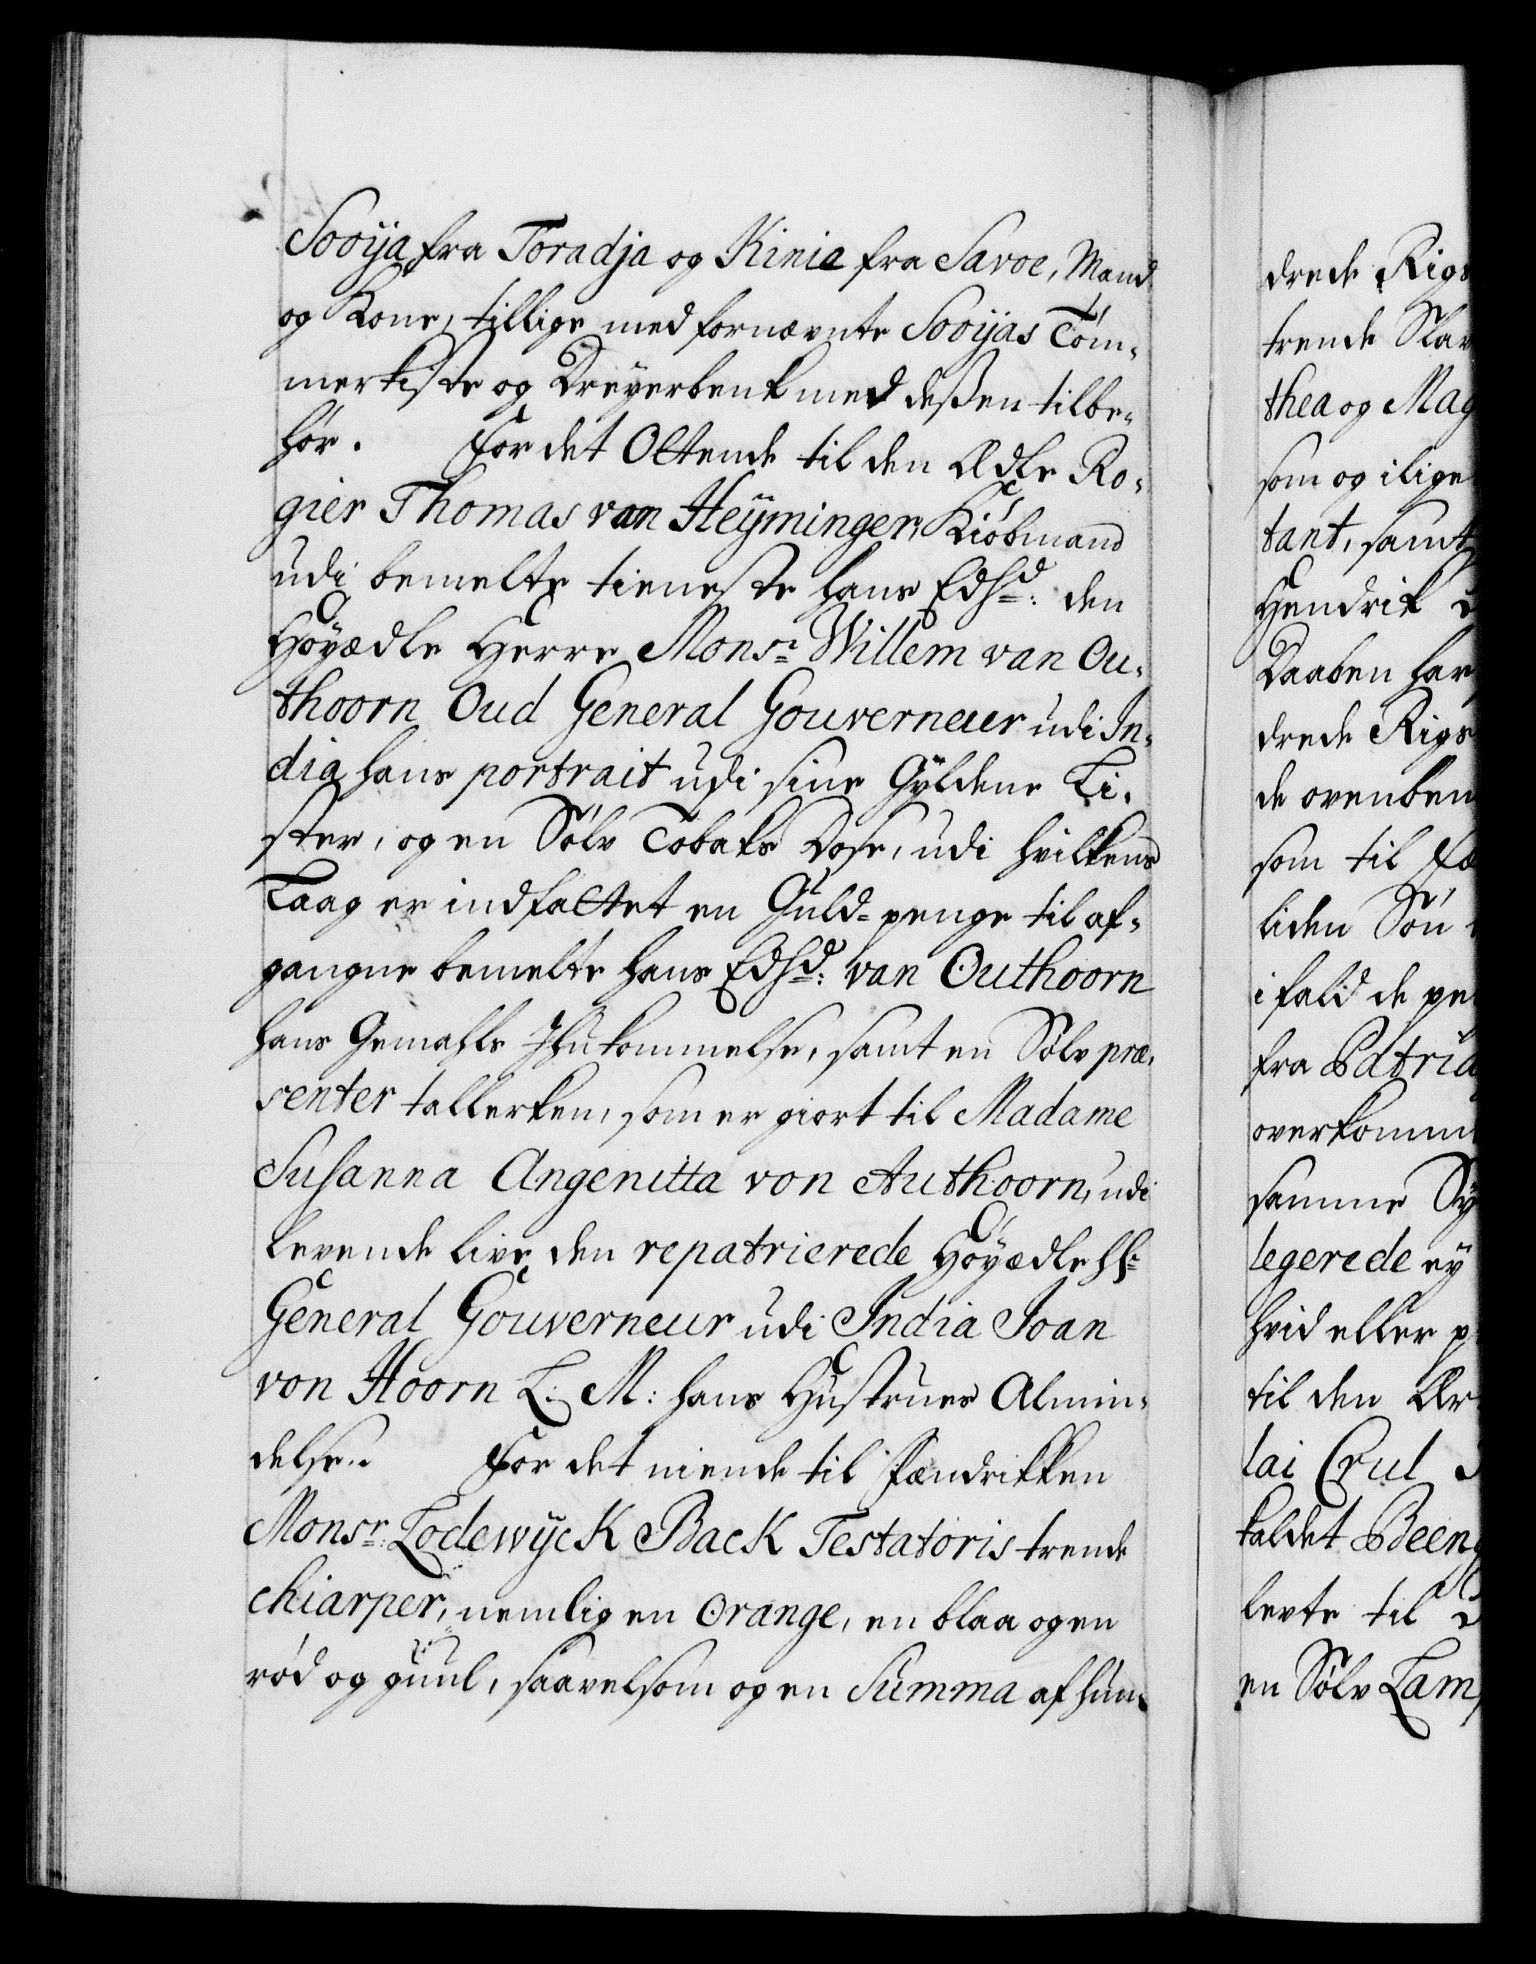 Sooÿa fra Toradja og Kinia fra Savoe, Mand
og Kone, tillige med fornævnte Sooÿas Töm-
merkiste og Dreyerbenk med deßen tilbe-
hör. For det Ottende til den Ædle Ro-
gier Thomas van Heÿminger, Kiöbmand
udi bemelte tieneste hans Edhd: den
Höÿædle Herre Monsr Willem van Ou-
thoorn Oud General Gouverneur udi In-
dia hans portrait udi sine Gyldene Li-
ster, og en Sölv Tobaks Dose, udi hvilkens
Laag er indfattet en Guld-penge til af-
gangne bemelte hans Edhd: van Outhoorn
hans Gemahls Ihukommelse, samt en Sölv præ-
senter tallerken, som er giort til Madame
Susanna Angenitta von Authoorn, udi
levende live den repatrierede Höÿædle Hr:
General Gouverneur udi India Joan
von Hoorn L: M: hans Hustrues Almin-
delse. For det niende til Fændrikken
Monsr: Lodewÿck Back Testatoris trende
chiarper, nemlig en Orange, en blaa og en
röd og guul, saavelsom og en Summa af hun-
drede Rigs
trende Slav
thea og Mag
som og ilige
tant, samt
Hendrik
Daaben har
drede Rigs
de ovenben
som til Fæ
liden Sön
i fald de pe
fra Patria
overkomm
samme Sy
legerede ey
hvid eller p
til den Ær
lai Crul
kaldet Beeng
levte til
en Sölv Lam